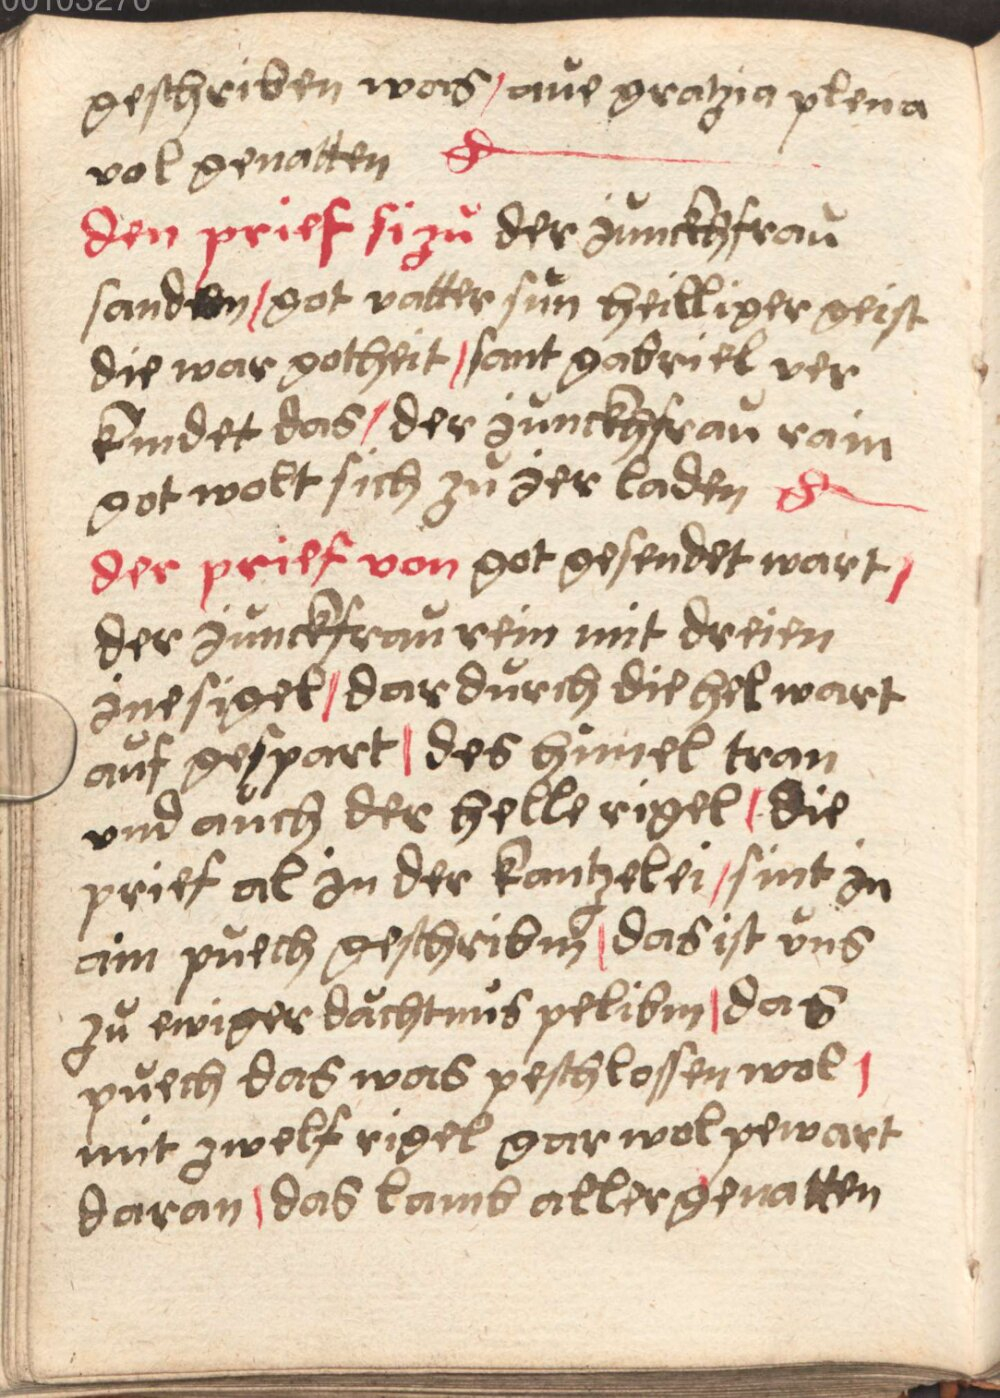 00103270
geschriben was / aue gratzia plena
vol genatten
den prief si zů der junckhfraů
sanden / got vatter sůn heilliger geist
die war gotheit / sant gabriel ver
kindet das / der junckhfraů rain
got wolt sich zů jer laden
der prief von got gesendet wart /
der junckfraů rein mit dreien
jnesigel / dar důrch die hel wart
aůf gespart / des himel tran
vnd aůch der helle rigel / die
prief al jn der kantzelei / sint jn
aim půech geschribm / das ist vns
zů ewiger dåchtnůs pelibm / das
půech das was peschlossen wol /
mit zwelf rigel gar wol pewart
daran / das lamb aller genatten